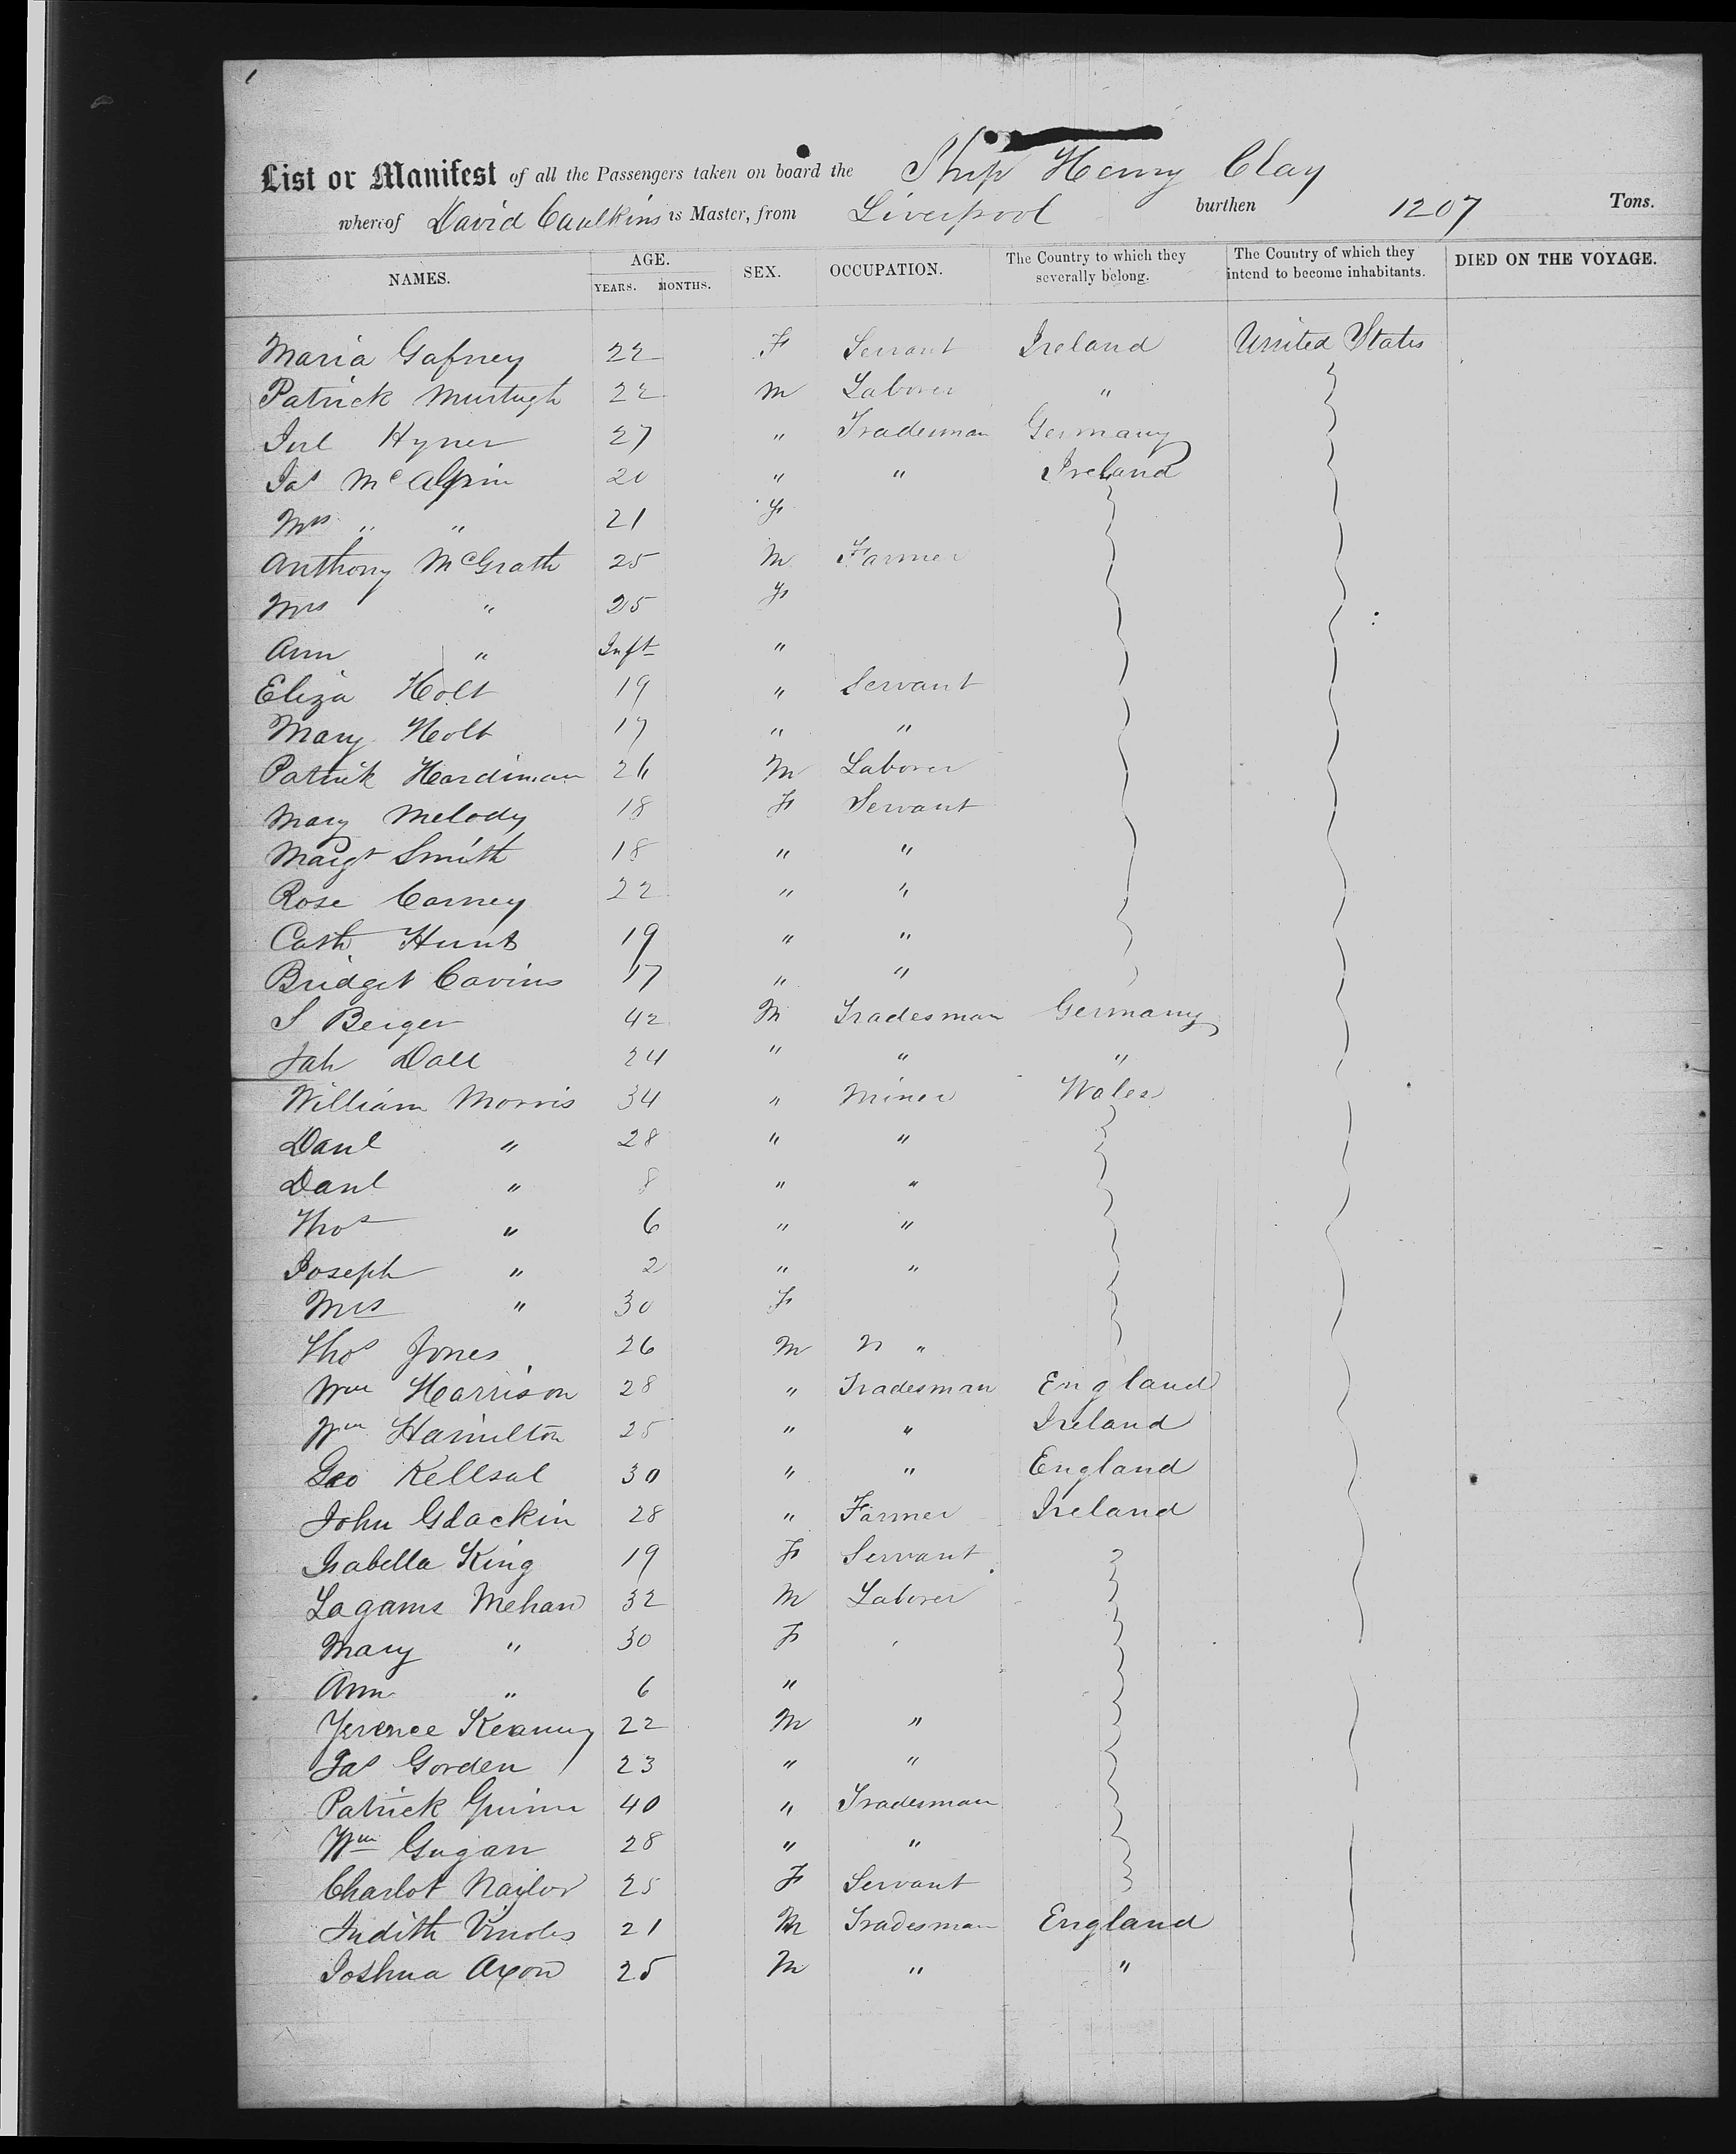 1
List or Manifest of all the Passengers taken on board the Ship Henry Clay
whereof David Caulkins is Master, from Liverpool burthen 1207 Tons.
NAMES. AGE. YEARS. MONTHS. SEX. OCCUPATION. The Country to which they severally belong. The Country of which they intend to become inhabitants. DIED ON THE VOYAGE.
Maria Gafney 22 F Servant Ireland United States
Patrick Murtugh 22 M Laborer "
Hyner 27 " Tradesman Germany
Jas McAlpin 20 " " Ireland
Mrs " " 21 F
Anthony McGrath 25 M Farmer
Mrs " 25 F
Ann " Inft "
Eliza Holt 19 " Servant
Mary Holt 17 " "
Patrick Hardiman 26 M Laborer
Mary Melody 18 F Servant
Margt Smith 18 " "
Rose Carney 22 " "
Cath Hunt 19 " "
Bridget Cavins 17 " "
S Berger 42 M Tradesman Germany
Joh Doll 24 " " "
William Morris 34 " Miner Wales
Danl " 28 " "
Danl " 8 " "
Thos " 6 " "
Joseph " 2 " "
Mrs " 30 F
Thos Jones 26 M "
Wm Harrison 28 " Tradesman England
Wm Hamilton 25 " " Ireland
Geo Kellsal 30 " " England
John Glackin 28 " Farmer Ireland
Isabella King 19 F Servant
Mehan 32 M Laborer
Mary " 30 F
Ann " 6 "
Terence Kearney 22 M "
Jas Gorden 23 " "
Patrick Quinn 40 " Tradesman
Wm Gugan 28 " "
Charlot Naylor 25 F Servant
Judith 21 M Tradesman England
Joshua Axon 25 M " "